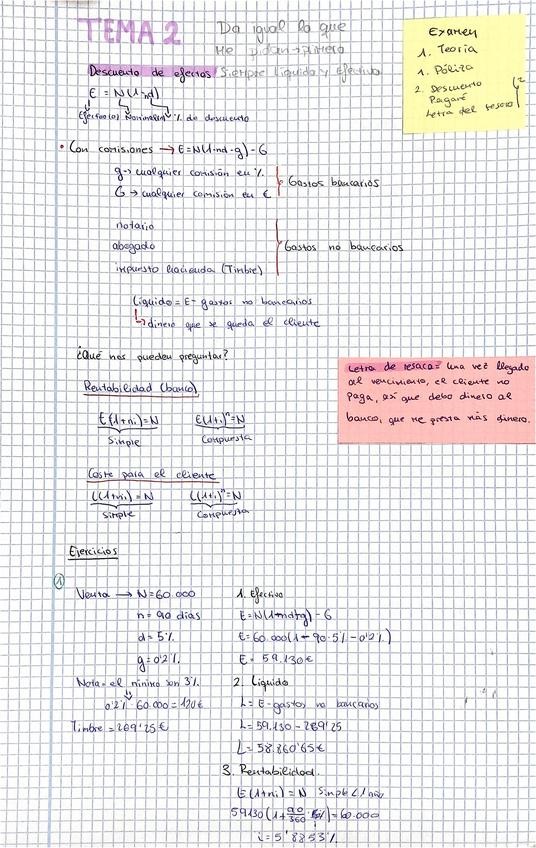 TEMA 2
Da igual lo que
Me pidan → primero
Siempre líquido y Efectivo
Examen
1. Teoría
1. Póliza
2. Descuento
Pagaré
Letra del resaca
Descuento de efectos
E = N(1-nd)
Efectivo(e) Nominal % de descuento
• Con comisiones → E=N(1-nd-g)-G
g → cualquier comisión en %.
G → cualquier comisión en €
Gastos bancarios
notario
abogado
impuesto hacienda (Timbre)
Gastos no bancarios
Líquido = E - gastos no bancarios
↳ dinero que se queda el cliente
¿Qué nos pueden preguntar?
Rentabilidad (banco)
E(1+ni)=N E(1+i)ⁿ=N
Simple Compuesta
Letra de resaca= Una vez llegado
al vencimiento, el cliente no
Paga, así que debo dinero al
banco, que me presta más dinero.
Coste para el cliente
L(1+ni)=N L(1+i)ⁿ=N
Simple Compuesta
Ejercicios
①
Venta → N=60.000
n=90 días
d=5%
g=0'2%
Nota= el mínimo son 3%
0'2% · 60.000 = 120€
Timbre = 269'25€
1. Efectivo
E=N(1-nd-g)-G
E=60.000(1-90·5%-0'2%)
E= 59.130€
2. Líquido
L= E-gastos no bancarios
L= 59.130 - 269'25
L= 58.860'65€
3. Rentabilidad.
E(1+ni)=N Simple <1 año
59130(1+90/360 · i)=60.000
i=5'8853%